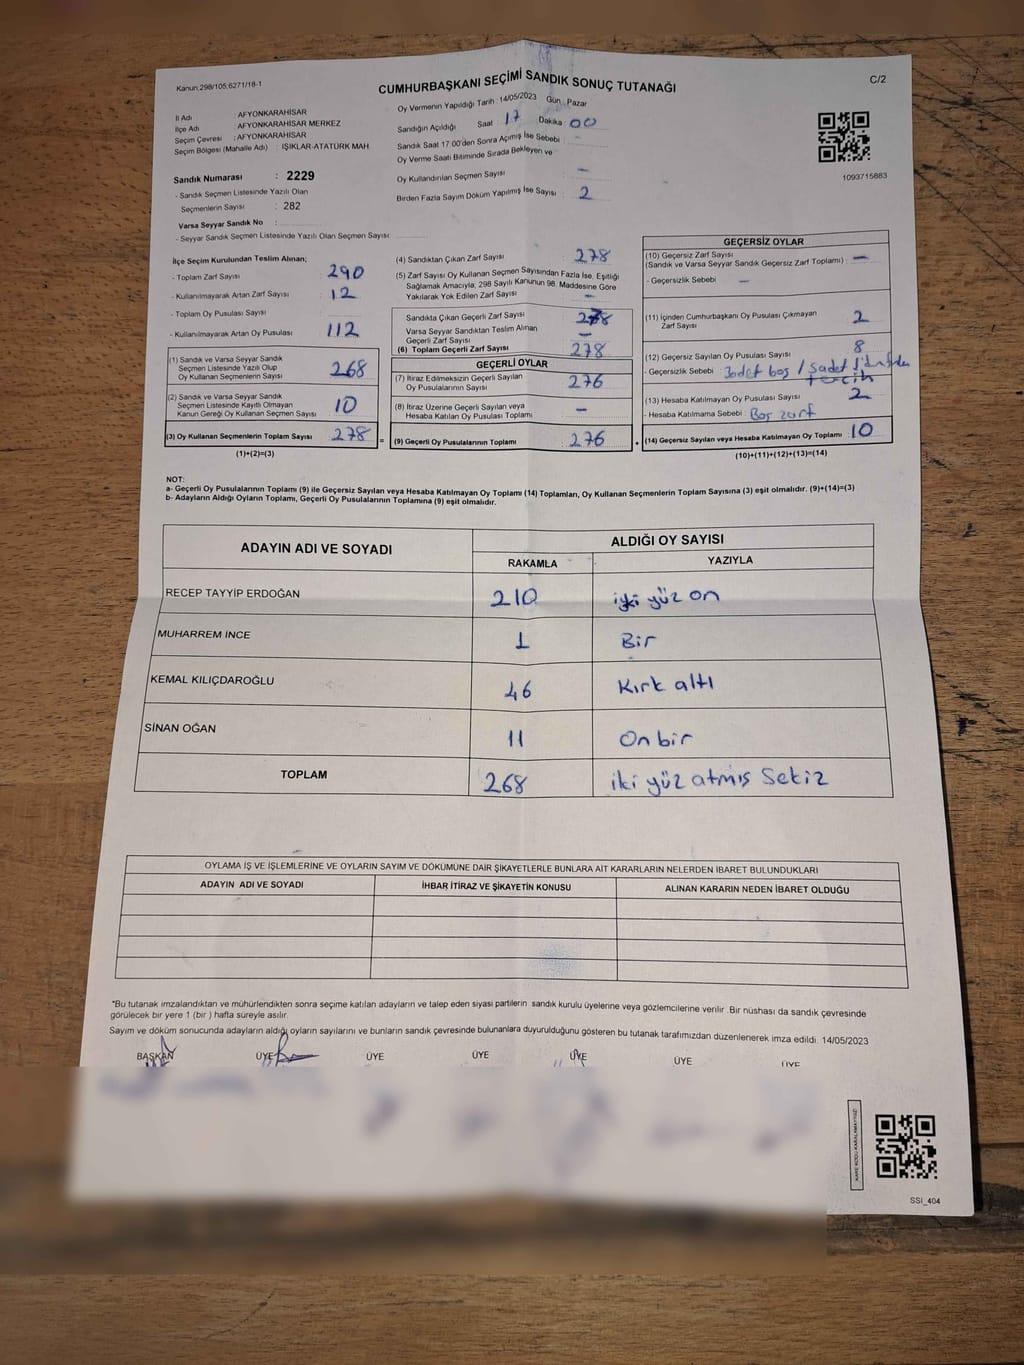 Kanun;298/105;6271/18-1
CUMHURBAŞKANI SEÇİMİ SANDIK SONUÇ TUTANAĞI
C/2
İl Adı : AFYONKARAHİSAR
İlçe Adı : AFYONKARAHİSAR MERKEZ
Seçim Çevresi : AFYONKARAHİSAR
Seçim Bölgesi (Mahalle Adı) : IŞIKLAR-ATATÜRK MAH
Sandık Numarası : 2229
- Sandık Seçmen Listesinde Yazılı Olan
Seçmenlerin Sayısı : 282
Varsa Seyyar Sandık No :
- Seyyar Sandık Seçmen Listesinde Yazılı Olan Seçmen Sayısı:
Oy Vermenin Yapıldığı Tarih : 14/05/2023 Gün : Pazar
Sandığın Açıldığı Saat : 17 Dakika : 00
Sandık Saat 17:00'den Sonra Açımış İse Sebebi : -
Oy Verme Saati Bitiminde Sırada Bekleyen ve
Oy Kullandırılan Seçmen Sayısı -
Birden Fazla Sayım Döküm Yapılmış İse Sayısı 2
1093715883
İlçe Seçim Kurulundan Teslim Alınan;
- Toplam Zarf Sayısı : 290
- Kullanılmayarak Artan Zarf Sayısı : 12
- Toplam Oy Pusulası Sayısı :
- Kullanılmayarak Artan Oy Pusulası : 112
(1) Sandık ve Varsa Seyyar Sandık
Seçmen Listesinde Yazılı Olup
Oy Kullanan Seçmenlerin Sayısı 268
(2) Sandık ve Varsa Seyyar Sandık
Seçmen Listesinde Kayıtlı Olmayan
Kanun Gereği Oy Kullanan Seçmen Sayısı 10
(3) Oy Kullanan Seçmenlerin Toplam Sayısı 278 =
(1)+(2)=(3)
(4) Sandıktan Çıkan Zarf Sayısı : 278
(5) Zarf Sayısı Oy Kullanan Seçmen Sayısından Fazla İse, Eşitliği
Sağlamak Amacıyla, 298 Sayılı Kanunun 98. Maddesine Göre
Yakılarak Yok Edilen Zarf Sayısı : -
Sandıkta Çıkan Geçerli Zarf Sayısı 278
Varsa Seyyar Sandıktan Teslim Alınan
Geçerli Zarf Sayısı -
(6) Toplam Geçerli Zarf Sayısı 278
GEÇERLİ OYLAR
(7) İtiraz Edilmeksizin Geçerli Sayılan
Oy Pusulalarının Sayısı 276
(8) İtiraz Üzerine Geçerli Sayılan veya
Hesaba Katılan Oy Pusulası Toplamı -
(9) Geçerli Oy Pusulalarının Toplamı 276 +
GEÇERSİZ OYLAR
(10) Geçersiz Zarf Sayısı
(Sandık ve Varsa Seyyar Sandık Geçersiz Zarf Toplamı) : -
- Geçersizlik Sebebi : -
(11) İçinden Cumhurbaşkanı Oy Pusulası Çıkmayan
Zarf Sayısı 2
(12) Geçersiz Sayılan Oy Pusulası Sayısı 8
- Geçersizlik Sebebi : 3adet boş / 5adet
tercih
(13) Hesaba Katılmayan Oy Pusulası Sayısı 2
- Hesaba Katılmama Sebebi : Boş zarf
(14) Geçersiz Sayılan veya Hesaba Katılmayan Oy Toplamı 10
(10)+(11)+(12)+(13)=(14)
NOT:
a- Geçerli Oy Pusulalarının Toplamı (9) ile Geçersiz Sayılan veya Hesaba Katılmayan Oy Toplamı (14) Toplamları, Oy Kullanan Seçmenlerin Toplam Sayısına (3) eşit olmalıdır. (9)+(14)=(3)
b- Adayların Aldığı Oyların Toplamı, Geçerli Oy Pusulalarının Toplamına (9) eşit olmalıdır.
ADAYIN ADI VE SOYADI
ALDIĞI OY SAYISI
RAKAMLA YAZIYLA
RECEP TAYYİP ERDOĞAN 210 iki yüz on
MUHARREM İNCE 1 Bir
KEMAL KILIÇDAROĞLU 46 Kırk altı
SİNAN OĞAN 11 On bir
TOPLAM 268 iki yüz atmış Sekiz
OYLAMA İŞ VE İŞLEMLERİNE VE OYLARIN SAYIM VE DÖKÜMÜNE DAİR ŞİKAYETLERLE BUNLARA AİT KARARLARIN NELERDEN İBARET BULUNDUKLARI
ADAYIN ADI VE SOYADI İHBAR İTİRAZ VE ŞİKAYETİN KONUSU ALINAN KARARIN NEDEN İBARET OLDUĞU
*Bu tutanak imzalandıktan ve mühürlendikten sonra seçime katılan adayların ve talep eden siyasi partilerin sandık kurulu üyelerine veya gözlemcilerine verilir. Bir nüshası da sandık çevresinde
görülecek bir yere 1 (bir ) hafta süreyle asılır.
Sayım ve döküm sonucunda adayların aldığı oyların sayılarını ve bunların sandık çevresinde bulunanlara duyurulduğunu gösteren bu tutanak tarafımızdan düzenlenerek imza edildi. 14/05/2023
BAŞKAN ÜYE ÜYE ÜYE ÜYE ÜYE ÜYE
KARE KODU KARALAMAYINIZ!
SSI_404